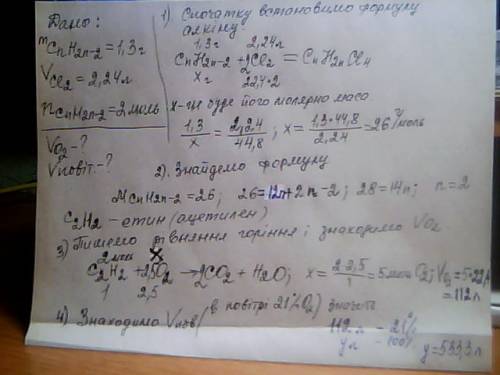 Дано:
mCnH2n-2 = 1,3г
VCl2 = 2,24л
nCnH2n-2 = 2 моль
VO2 - ?
Vповіт. - ?
1) Спочатку встановимо формулу
алкіну:
1,3г 2,24л
CnH2n-2 + 2Cl2 = CnH2nCl4
xг 22,4·2
x - це буде його молярна маса
1,3/x = 2,24/44,8; x = 1,3·44,8/2,24 = 26 г/моль
2). Знайдемо формулу
MCnH2n-2 = 26; 26 = 12n + 2n - 2; 28 = 14n; n = 2
C2H2 - етин (ацетилен)
3) Пишемо рівняння горіння і знаходимо VO2
2 моль x
C2H2 + 2,5O2 → 2CO2 + H2O; x = 2·2,5/1 = 5 моль O2; VO2 = 5·22,4
1 2,5 = 112л
4) Знаходимо Vпов (в повітрі 21% O2) значить
112л - 21%
yл - 100% y = 533,3л